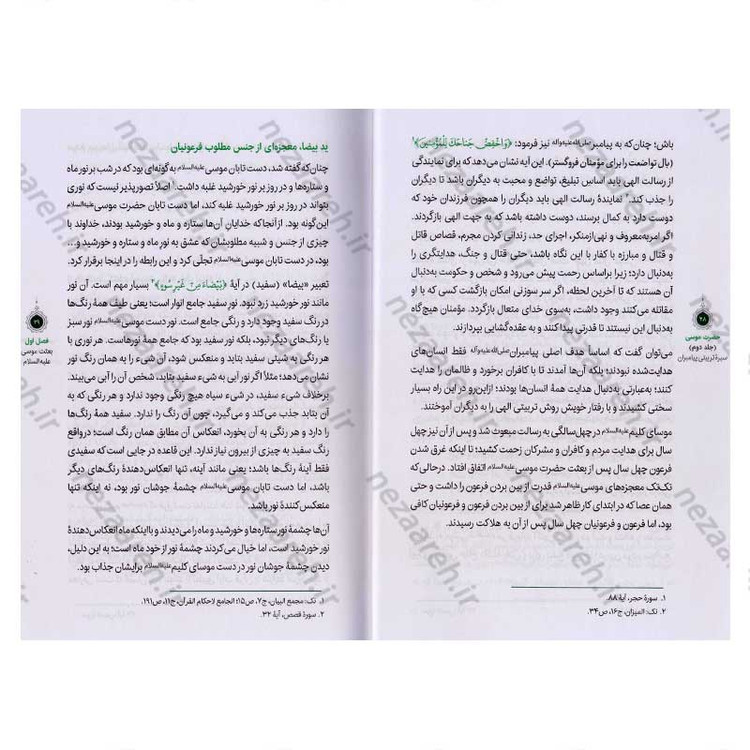 باش؛ چنان‌که به پیامبر صلی‌الله‌علیه‌وآله نیز فرمود: ﴿وَاخْفِضْ جَنَاحَكَ لِلْمُؤْمِنِينَ﴾۱
(بال تواضعت را برای مؤمنان فروگستر). این آیه نشان می‌دهد که برای نمایندگی
از رسالت الهی باید اساس تبلیغ، تواضع و محبت به دیگران باشد تا دیگران
را جذب کند.۲ نمایندهٔ رسالت الهی باید دیگران را همچون فرزندان خود که
دوست دارد به کمال برسند، دوست داشته باشد که به جهت الهی بازگردند.
اگر امربه‌معروف و نهی‌ازمنکر، اجرای حد، زندانی کردن مجرم، قصاص قاتل
و قتال و مبارزه با کفار با این نگاه باشد، حتی قتال و جنگ، هدایتگری را
به‌دنبال دارد؛ زیرا براساس رحمت پیش می‌رود و شخص و حکومت به‌دنبال
آن هستند که تا آخرین لحظه، اگر سر سوزنی امکان بازگشت کسی که با او
مقاتله می‌کنند وجود داشت، به‌سوی خدای متعال بازگردد. مؤمنان هیچ‌گاه
به‌دنبال این نیستند تا قدرتی پیدا کنند و به عقده‌گشایی بپردازند.
می‌توان گفت که اساساً هدف اصلی پیامبران صلی‌الله‌علیه‌وآله فقط انسان‌های
هدایت‌شده نبودند؛ بلکه آن‌ها آمدند تا با کافران برخورد و ظالمان را هدایت
کنند؛ به‌عبارتی به‌دنبال هدایت همهٔ انسان‌ها بودند؛ ازاین‌رو در این راه بسیار
سختی کشیدند و با رفتار خویش روش تربیتی الهی را به دیگران آموختند.
موسای کلیم علیه‌السلام در چهل‌سالگی به رسالت مبعوث شد و پس از آن نیز چهل
سال برای هدایت مردم و کافران و مشرکان زحمت کشید؛ تا اینکه غرق شدن
فرعون چهل سال پس از بعثت حضرت موسی علیه‌السلام اتفاق افتاد. درحالی که
تک‌تک معجزه‌های موسی علیه‌السلام قدرت از بین بردن فرعون را داشت و حتی
همان عصا که در ابتدای کار ظاهر شد برای از بین بردن فرعون و فرعونیان کافی
بود، اما فرعون و فرعونیان چهل سال پس از آن به هلاکت رسیدند.
۱. سورهٔ حجر، آیهٔ ۸۸.
۲. نک: المیزان، ج۱۶، ص۳۴.
۲۸
حضرت موسی
(جلد دوم)
سیرهٔ تربیتی پیامبران
ید بیضا، معجزه‌ای از جنس مطلوب فرعونیان
چنان‌که گفته شد، دست تابان موسی علیه‌السلام به گونه‌ای بود که در شب بر نور ماه
و ستاره‌ها و در روز بر نور خورشید غلبه داشت.۱ اصلاً تصورپذیر نیست که نوری
بتواند در روز بر نور خورشید غلبه کند، اما دست تابان حضرت موسی علیه‌السلام
این‌گونه بود. از آنجا که خدایانِ آن‌ها ستاره و ماه و خورشید بودند، خداوند با
چیزی از جنس و شبیه مطلوبشان که عشق به نور ماه و ستاره و خورشید و...
بود، در دست تابان موسی علیه‌السلام تجلّی کرد و این رابطه را در اینجا برقرار کرد.
تعبیر «بیضا» (سفید) در آیهٔ ﴿بَيْضَاءَ مِنْ غَيْرِ سُوءٍ﴾۲ بسیار مهم است. آن نور
مانند نور خورشید زرد نبود. نور سفید جامع انوار است؛ یعنی طیف همهٔ رنگ‌ها
در رنگ سفید وجود دارد و رنگی جامع است. نور دست موسی علیه‌السلام نور سبز
یا رنگ‌های دیگر نبود، بلکه نور سفید بود که جامع همهٔ نورهاست. هر نوری با
هر رنگی به شیئی سفید بتابد و منعکس شود، آن شیء را به همان رنگ نور
نشان می‌دهد؛ مثلاً اگر نور آبی به شیء سفید بتابد، شخص آن را آبی می‌بیند.
برخلاف شیء سفید، در شیء سیاه هیچ رنگی وجود ندارد و هر رنگی که به
آن بتابد جذب می‌کند و می‌گیرد، چون آن رنگ را ندارد. سفید همهٔ رنگ‌ها
را دارد و هر رنگی به آن بخورد، انعکاس آن مطابق همان رنگ است؛ درواقع
سفیدی به چیزی از بیرون نیاز ندارد. این قاعده در جایی است که سفیدی
فقط آینهٔ رنگ‌ها باشد؛ یعنی مانند آینه، تنها انعکاس‌دهندهٔ رنگ‌های دیگر
باشد، اما دست تابان موسی علیه‌السلام چشمهٔ جوشان نور بود، نه اینکه تنها
منعکس‌کنندهٔ نور باشد.
آن‌ها چشمهٔ نور ستاره‌ها و خورشید و ماه را می‌دیدند و با اینکه ماه انعکاس‌دهندهٔ
نور خورشید است، اما خیال می‌کردند چشمهٔ نور از خود ماه است؛ به این دلیل،
دیدن چشمهٔ جوشان نور در دست موسای کلیم علیه‌السلام برایشان جذاب بود.
۱. نک: مجمع البیان، ج۷، ص۱۵؛ الجامع لاحکام القرآن، ج۱۱، ص۱۹۱.
۲. سورهٔ قصص، آیهٔ ۳۲.
۲۹
فصل اول
بعثت موسی
علیه‌السلام
nezaareh.ir